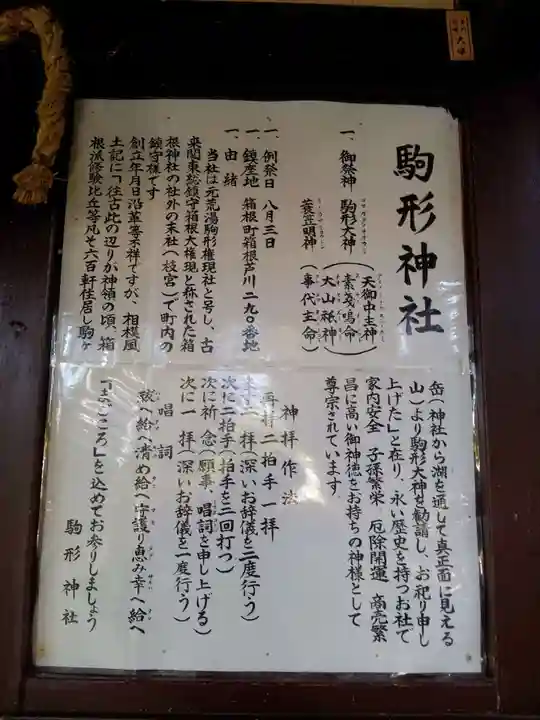 駒形神社
一、御祭神 駒形大神(天御中主神
素戔嗚命
大山祇神)
蓑笠明神(事代主命)
一、例祭日 八月三日
一、鎮座地 箱根町箱根芦川二九〇番地
一、由緒
当社は元荒湯駒形権現社と号し、古
来関東総鎮守箱根大権現と称された箱
根神社の社外の末社(枝宮)で町内の
鎮守様です
創立年月日沿革等不祥ですが、相模風
土記に「往古此の辺りが神領の頃、箱
根派修験比丘等凡そ六百軒住居し駒ヶ
岳(神社から湖を通して真正面に見える
山)より駒形大神を勧請し、お祀り申し
上げた」と在り、永い歴史を持つお社で
家内安全 子孫繁栄 厄除開運 商売繁
昌に高い御神徳をお持ちの神様として
尊宗されています
神拝作法
再拝二拍手一拝
二拝(深いお辞儀を二度行う)
次に二拍手(拍手を二回打つ)
次に祈念(願事、唱詞を申し上げる)
次に一拝(深いお辞儀を一度行う)
唱詞
祓へ給へ清め給へ守護り恵み幸へ給へ
ごころ」を込めてお参りしましょう
駒形神社
大塚